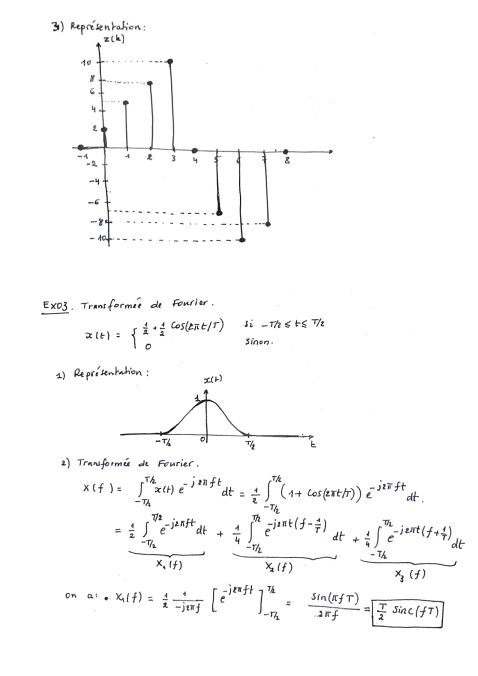 3) Représentation:
z(k)
10
8
6
4
2
-1 1 2 3 4 5 6 7 8
-2
-4
-6
-8
-10
EX03. Transformée de Fourier.
x(t) = { 1/2 + 1/2 cos(2πt/T) si -T/2 ≤ t ≤ T/2
0 sinon.
1) Représentation:
x(t)
1
-T/2 0 T/2 t
2) Transformée de Fourier.
X(f) = ∫_{-T/2}^{T/2} x(t) e^{-j2πft} dt = 1/2 ∫_{-T/2}^{T/2} (1 + cos(2πt/T)) e^{-j2πft} dt.
= 1/2 ∫_{-T/2}^{T/2} e^{-j2πft} dt + 1/4 ∫_{-T/2}^{T/2} e^{-j2πt(f-1/T)} dt + 1/4 ∫_{-T/2}^{T/2} e^{-j2πt(f+1/T)} dt
X₁(f) X₂(f) X₃(f)
on a: • X₁(f) = 1/2 1/(-j2πf) [e^{-j2πft}]_{-T/2}^{T/2} = sin(πfT)/(2πf) = T/2 sinc(fT)